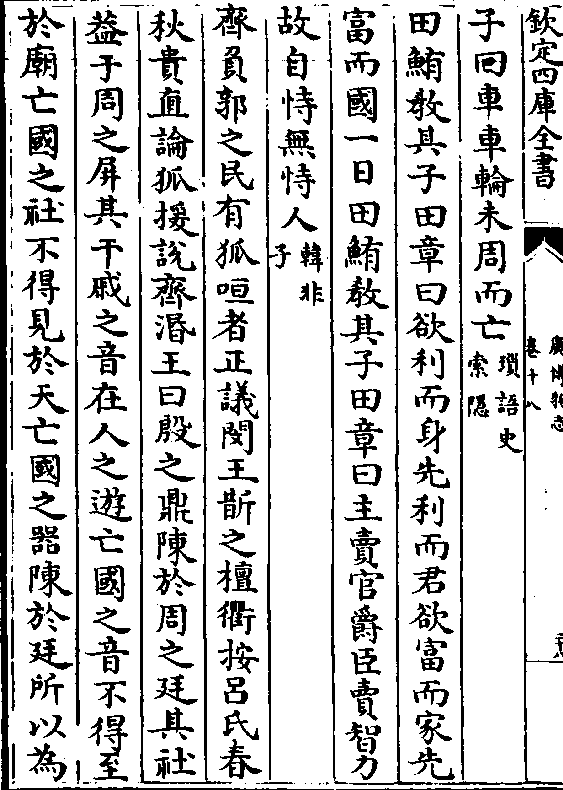 欽定四庫全書
廣博物志
卷十八
子曰車車輪未周而亡瑣語史索隠
田鮪敎其子田章曰欲利而身先利而君欲富而家先
富而國一日田鮪敎其子田章曰主賣官爵臣賣智力
故自恃無恃人韓非子
齊負郭之民有狐咺者正議閔王斮之檀衢按吕氏春
秋貴直論狐援説齊湣王曰殷之鼎陳於周之廷其社
葢于周之屏其干戚之音在人之遊亡國之音不得至
於廟亡國之社不得見於天亡國之器陳於廷所以為